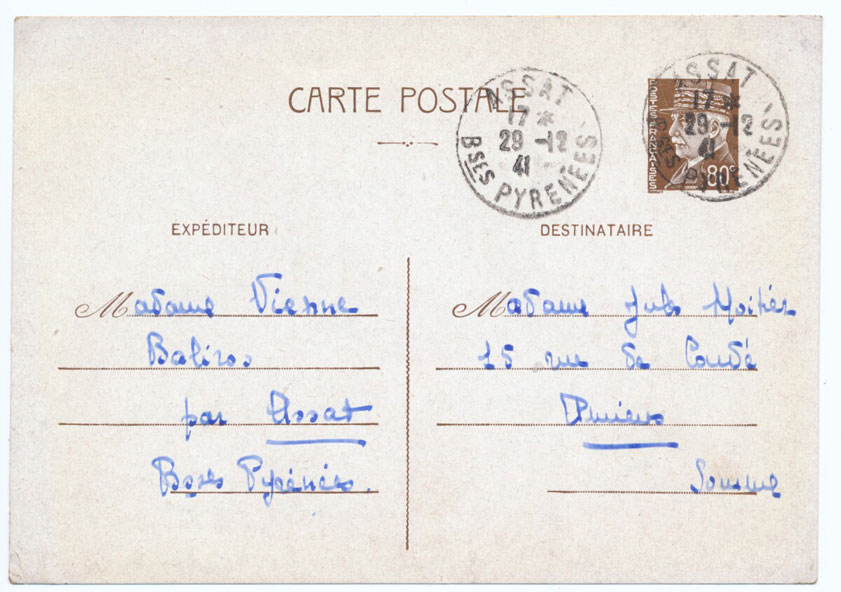 CARTE POSTALE
ASSAT
17 *
29 -12
41
Bses PYRENÉES
ASSAT
17 *
29 -12
41
Bses PYRENÉES
POSTES FRANÇAISES
80c
EXPÉDITEUR
Madame Vienne
Baliros
par Assat
Bses Pyrénées.
DESTINATAIRE
Madame Jules
15 rue de Condé
Amiens
Somme